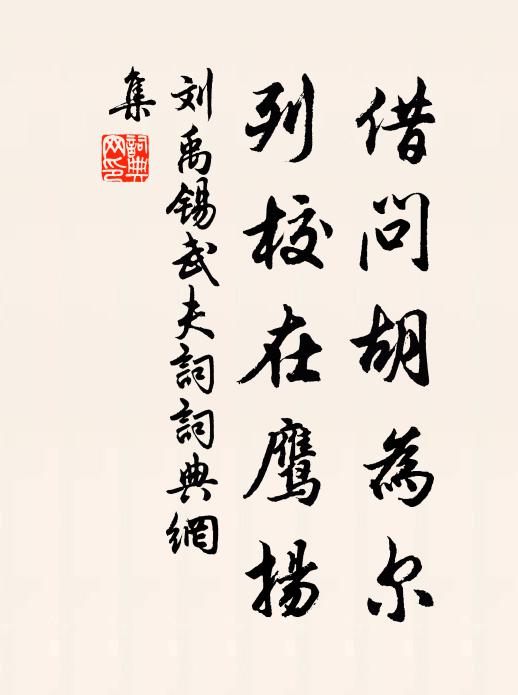 借问胡為尔
列校在鹰揚
刘禹锡武夫詞詞典網
集
詞典
网印